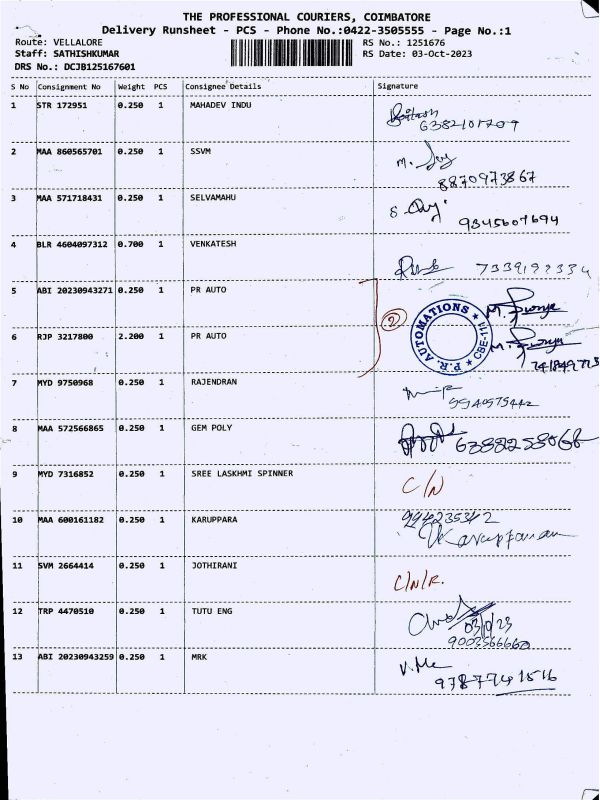 THE PROFESSIONAL COURIERS, COIMBATORE
Delivery Runsheet - PCS - Phone No.:0422-3505555 - Page No.:1
Route: VELLALORE RS No.: 1251676
Staff: SATHISHKUMAR RS Date: 03-Oct-2023
DRS No.: DCJB125167601
S No Consignment No Weight PCS Consignee Details Signature
1 STR 172951 0.250 1 MAHADEV INDU
6382101709
2 MAA 860565701 0.250 1 SSVM
8870973867
3 MAA 571718431 0.250 1 SELVAMAHU
9345607694
4 BLR 4604097312 0.700 1 VENKATESH
7339192334
5 ABI 20230943271 0.250 1 PR AUTO
2
P.R. AUTOMATIONS ★ CBE-111 ★
6 RJP 3217800 2.200 1 PR AUTO
7 MYD 9750968 0.250 1 RAJENDRAN
9940575442
8 MAA 572566865 0.250 1 GEM POLY
9 MYD 7316852 0.250 1 SREE LASKHMI SPINNER
C/N
10 MAA 600161182 0.250 1 KARUPPARA
994235342
11 SVM 2664414 0.250 1 JOTHIRANI
C/N/R.
12 TRP 4470510 0.250 1 TUTU ENG
03/10/23
9003566660
13 ABI 20230943259 0.250 1 MRK
9787741516